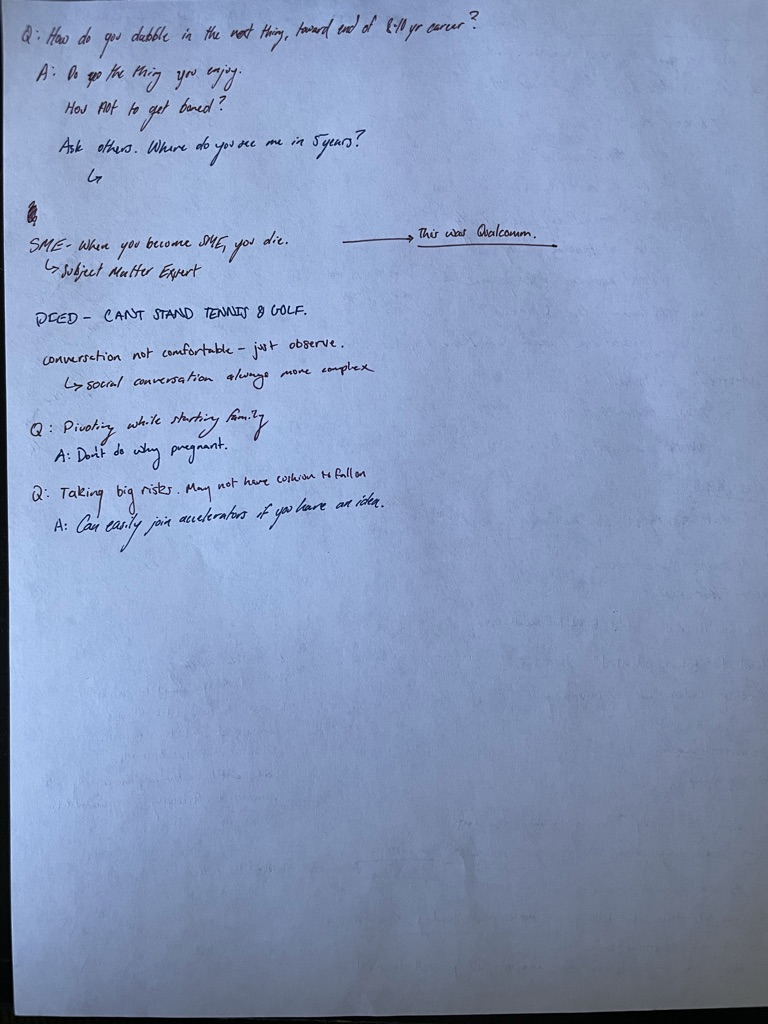 Q: How do you dabble in the next thing, toward end of 8-10 yr career?
A: Do the thing you enjoy.
How not to get bored?
Ask others. Where do you see me in 5 years?
↳
SME - When you become SME, you die. → This was Qualcomm.
↳ Subject Matter Expert
DIED - CANT STAND TENNIS & GOLF.
conversation not comfortable - just observe.
↳ social conversation always more complex
Q: Pivoting while starting family
A: Don't do why pregnant.
Q: Taking big risks. May not have cushion to fall on
A: Can easily join accelerators if you have an idea.